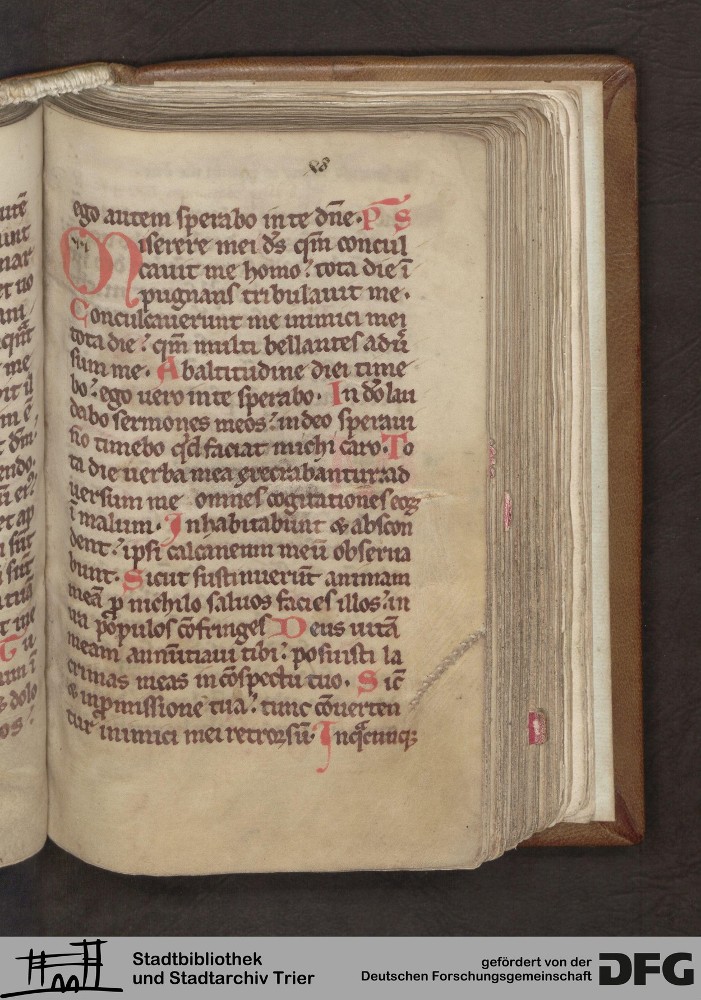 ego autem sperabo in te dn̄e. Ps
Miserere mei ds̄ qm̄ concul
cauit me homo: tota die ī
pugnans tribulauit me.
Conculcauerunt me inimici mei
tota die: qm̄ multi bellantes adū
sum me. Abaltitudine diei time
bo: ego uero in te sperabo. In dō lau
dabo sermones meos: in deo speraui
nō timebo qd̄ faciat michi caro. To
ta die uerba mea execrabantur: ad
uersum me omnes cogitationes eoꝝ
ī malum. Inhabitabunt & abscon
dent: ipsi calcaneum meū obserua
bunt. Sicut sustinuerūt animam
meā ꝓ nichilo saluos facies illos: in
ira populos cōfringes Deus uitā
meam annūtiaui tibi: posuisti la
crimas meas in cōspectu tuo. Sic̄
& inpmissione tua: tunc cōuerten
tur inimici mei retrorsū. Inqͣcunqꝫ
Stadtbibliothek
und Stadtarchiv Trier
gefördert von der
Deutschen Forschungsgemeinschaft DFG